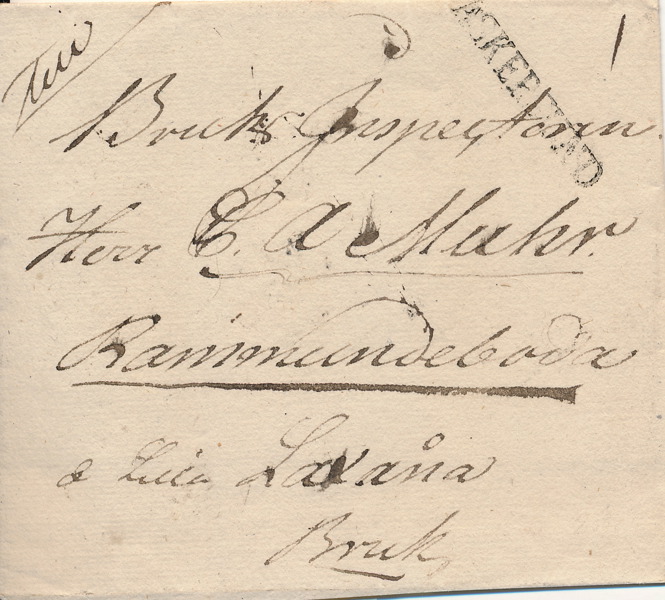 ASKERSUND
Bruks Inspectoren
Herr C. A. Muhr.
Rammundeboda
Laxåna
Bruk